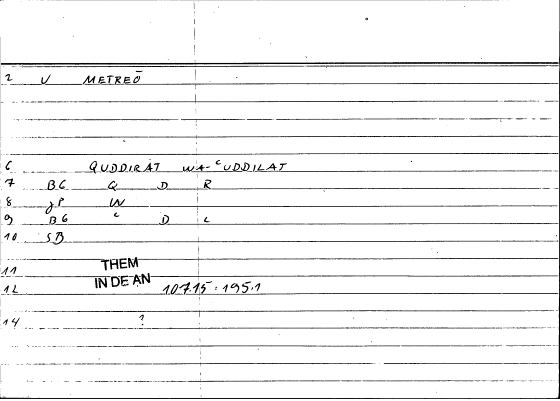 2 V METREŌ
6 QUDDIRAT WA-ʿUDDILAT
7 BG Q D R
8 JP W
9 BG ʿ D L
10 SB
11 THEM
IN DE AN
12 10715:195.1
14 ?